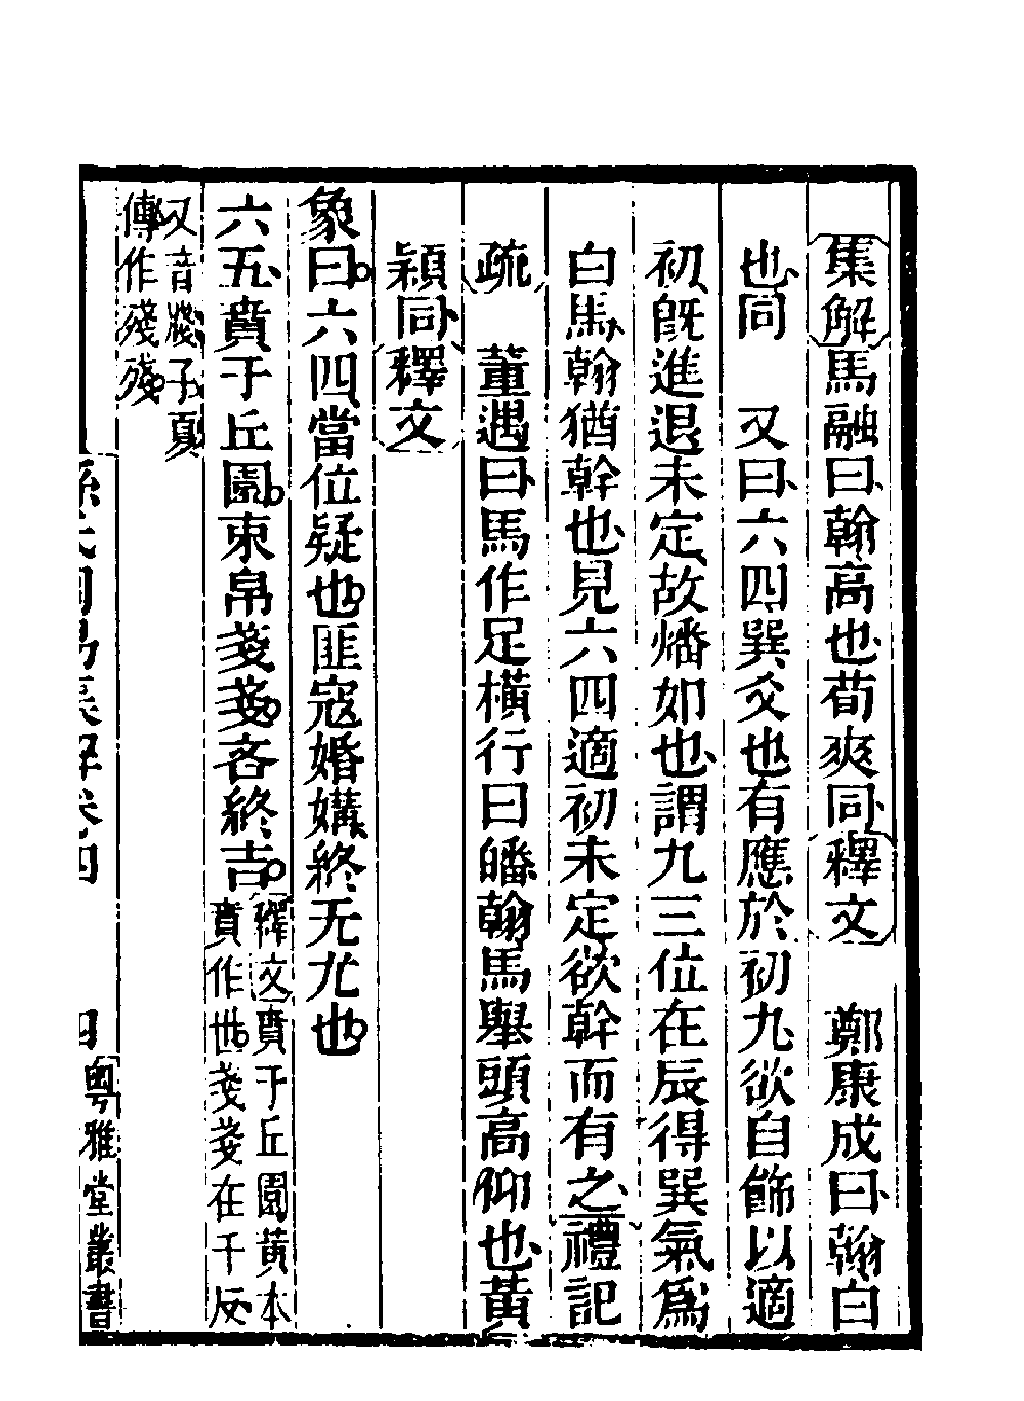 集解馬融曰翰高也荀爽同釋文　鄭康成曰翰白
也同　又曰六四巽爻也有應於初九欲自飾以適
初既進退未定故燔如也謂九三位在辰得巽氣爲
白馬翰猶幹也見六四適初未定欲幹而有之禮記
疏　董遇曰馬作足橫行曰皤翰馬舉頭高仰也黃
穎同釋文
象曰六四當位疑也匪寇婚媾終无尤也
六五賁于丘園束帛戔戔吝終吉釋文賁于丘園黃本
賁作世戔戔在千反
又音牋子夏
傳作殘殘
孫氏周易集解卷四
四
粵雅堂叢書